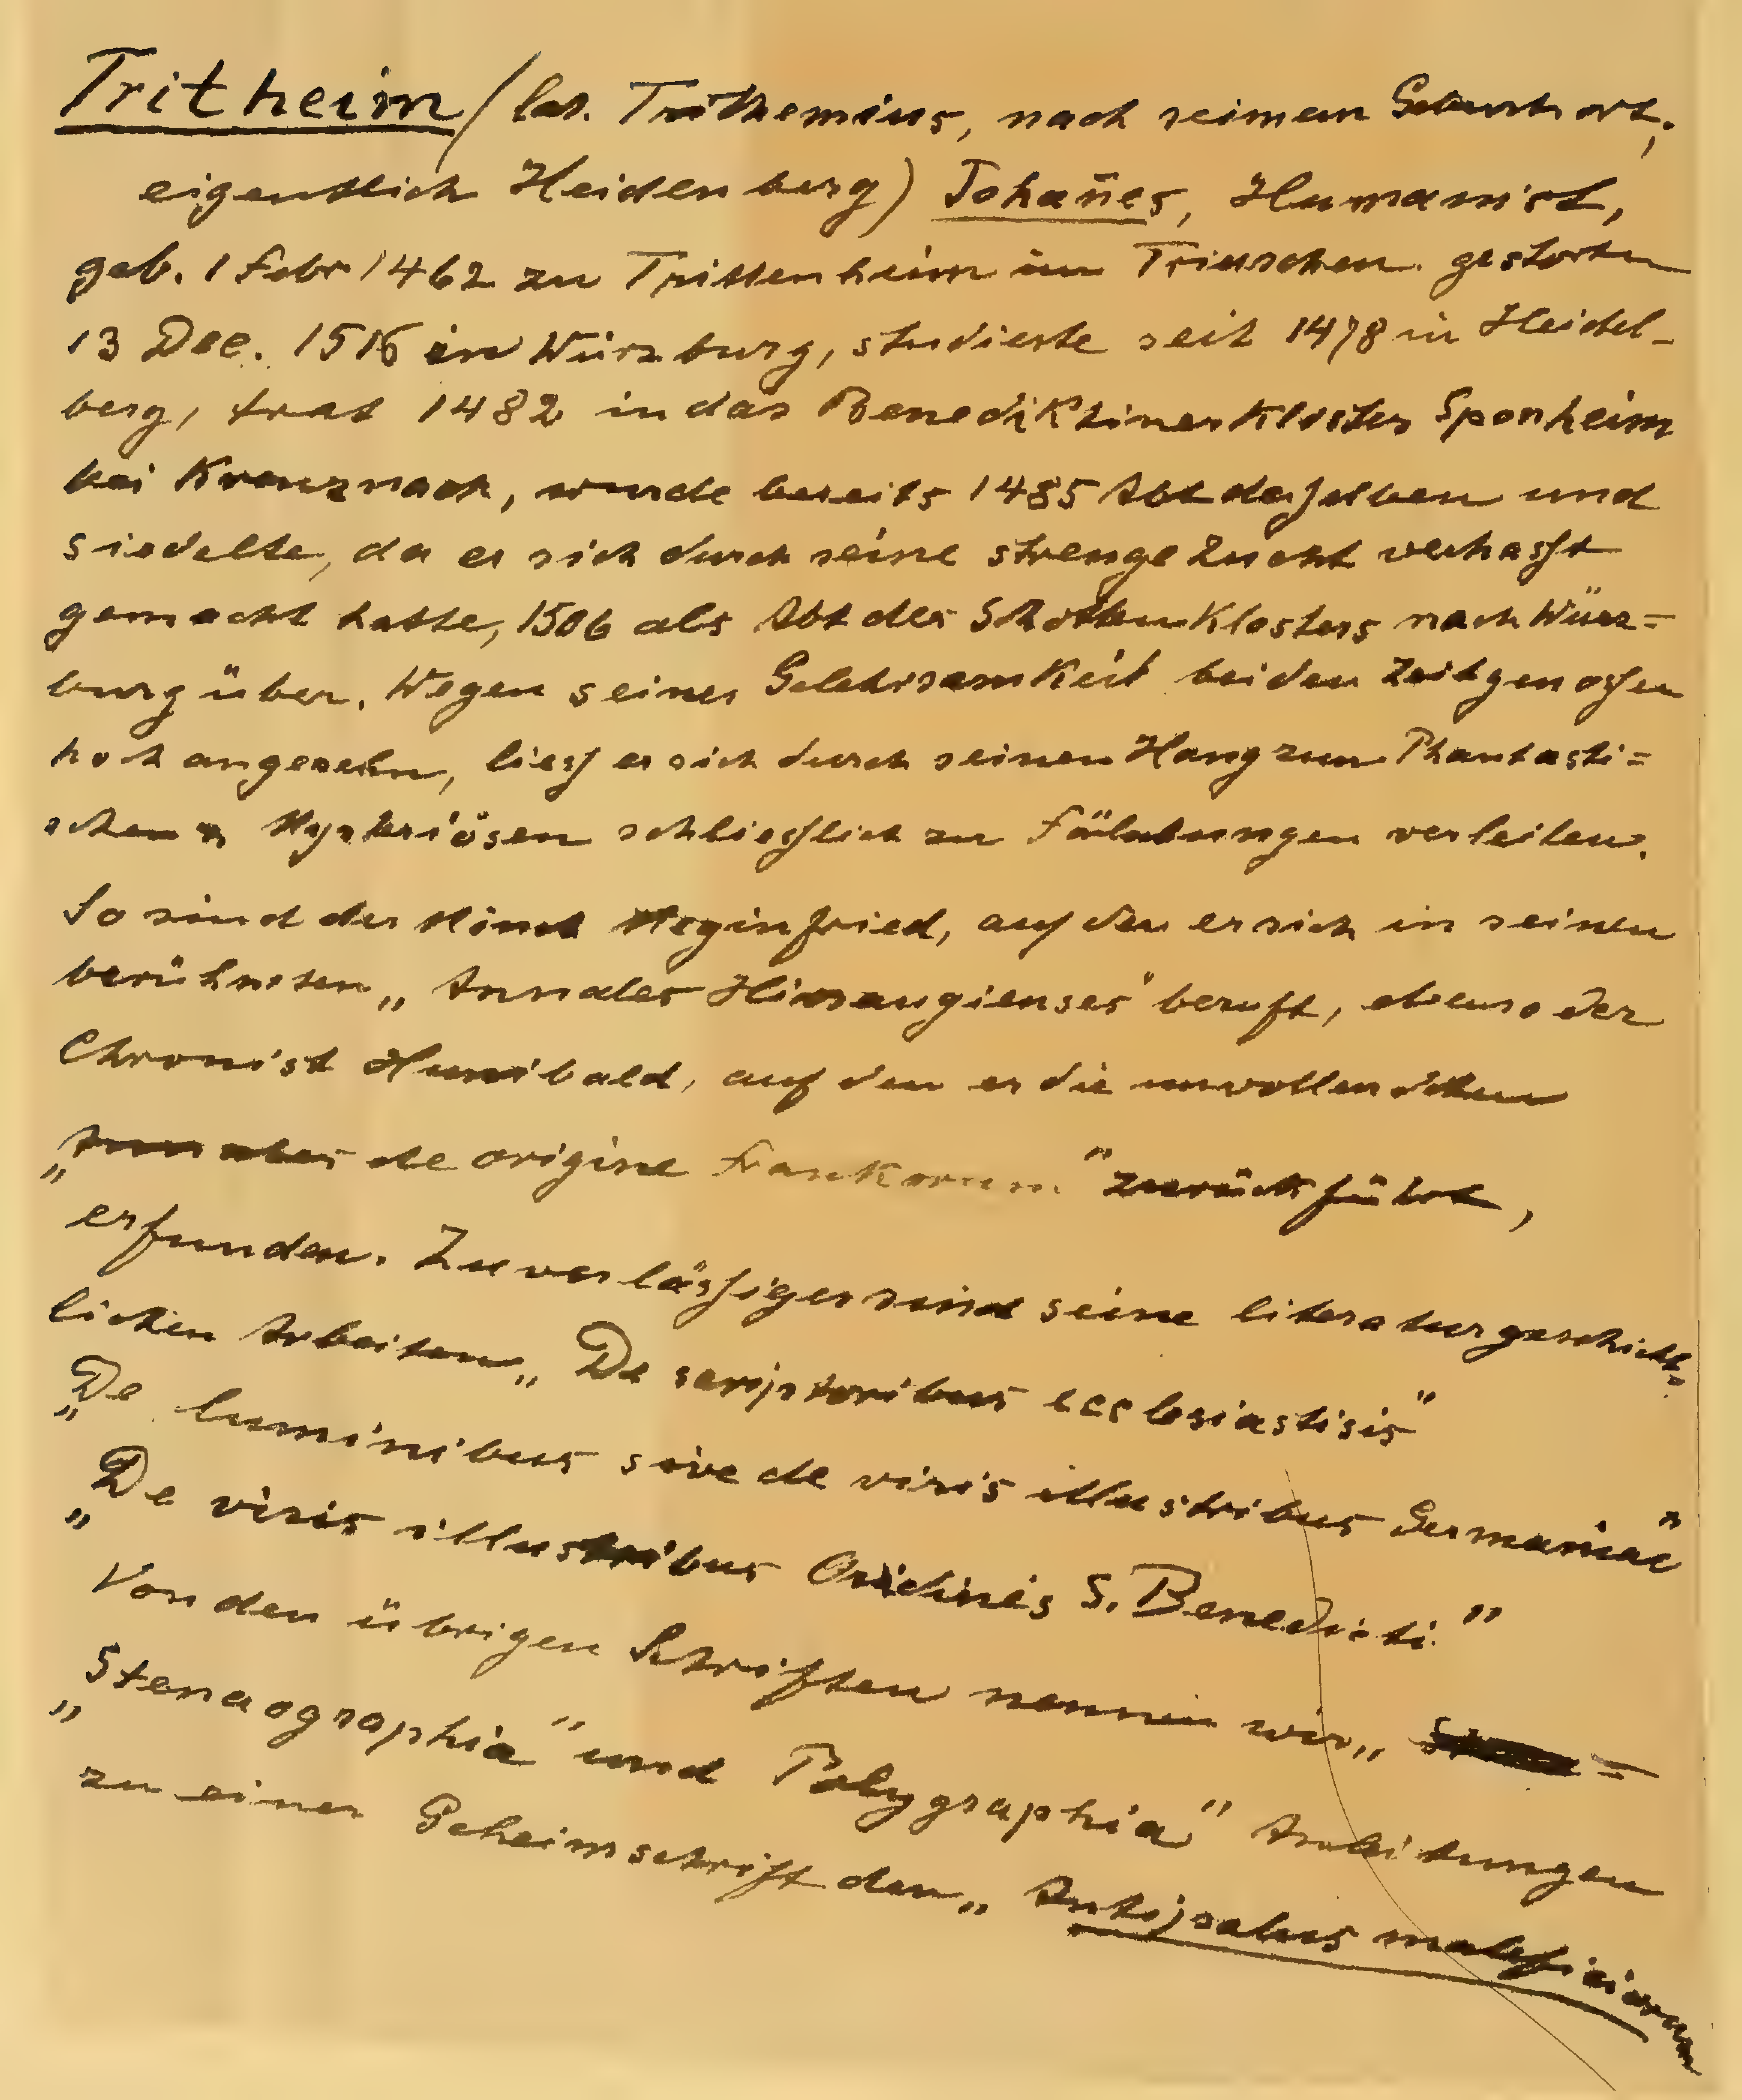 Tritheim (lat. Trithemius, nach seinem Geburtsort,
eigentlich Heidenberg) Johan̄es, Humanist,
geb. 1 Febr 1462 zu Trittenheim im Trierschen. gestorben
13 Dec. 1516 in Würzburg, studierte seit 1478 in Heidel-
berg, trat 1482 in das Benediktinerkloster Sponheim
bei Kreuznach, wurde bereits 1485 Abt desselben und
siedelte, da er sich durch seine strenge Zucht verhasst
gemacht hatte, 1506 als Abt des Schottenklosters nach Würz=
burg über. Wegen seiner Gelehrsamkeit bei den Zeitgenossen
hoch angesehn, liess er sich durch seinen Hang zum Phantasti=
schen u Mysteriösen schliesslich zu Fälschungen verleiten.
So sind der Mönch Meginfried, auf den er sich in seinen
berühmten „Annales Hirsaugienses" beruft, ebenso der
Chronist Hunibald, auf den er die unvollendeten
„Annales de origine Frankorum" zurückführt,
erfunden. Zuverlässiger sind seine literaturgeschicht=
lichen Arbeiten „De scriptoribus ecclesiastisis"
„De luminibus sive de viris illustribus Germaniae"
„De viris illustribus Ordinis S. Benedicti."
Von den übrigen Schriften nennen wir „
„Stenaographia" und Polygraphia" Anleitungen
zu einer Geheimschrift den „Antipalus maleficiorum